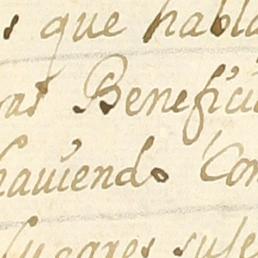 s que habla
as Benefici
haviend. Con
lugares suse